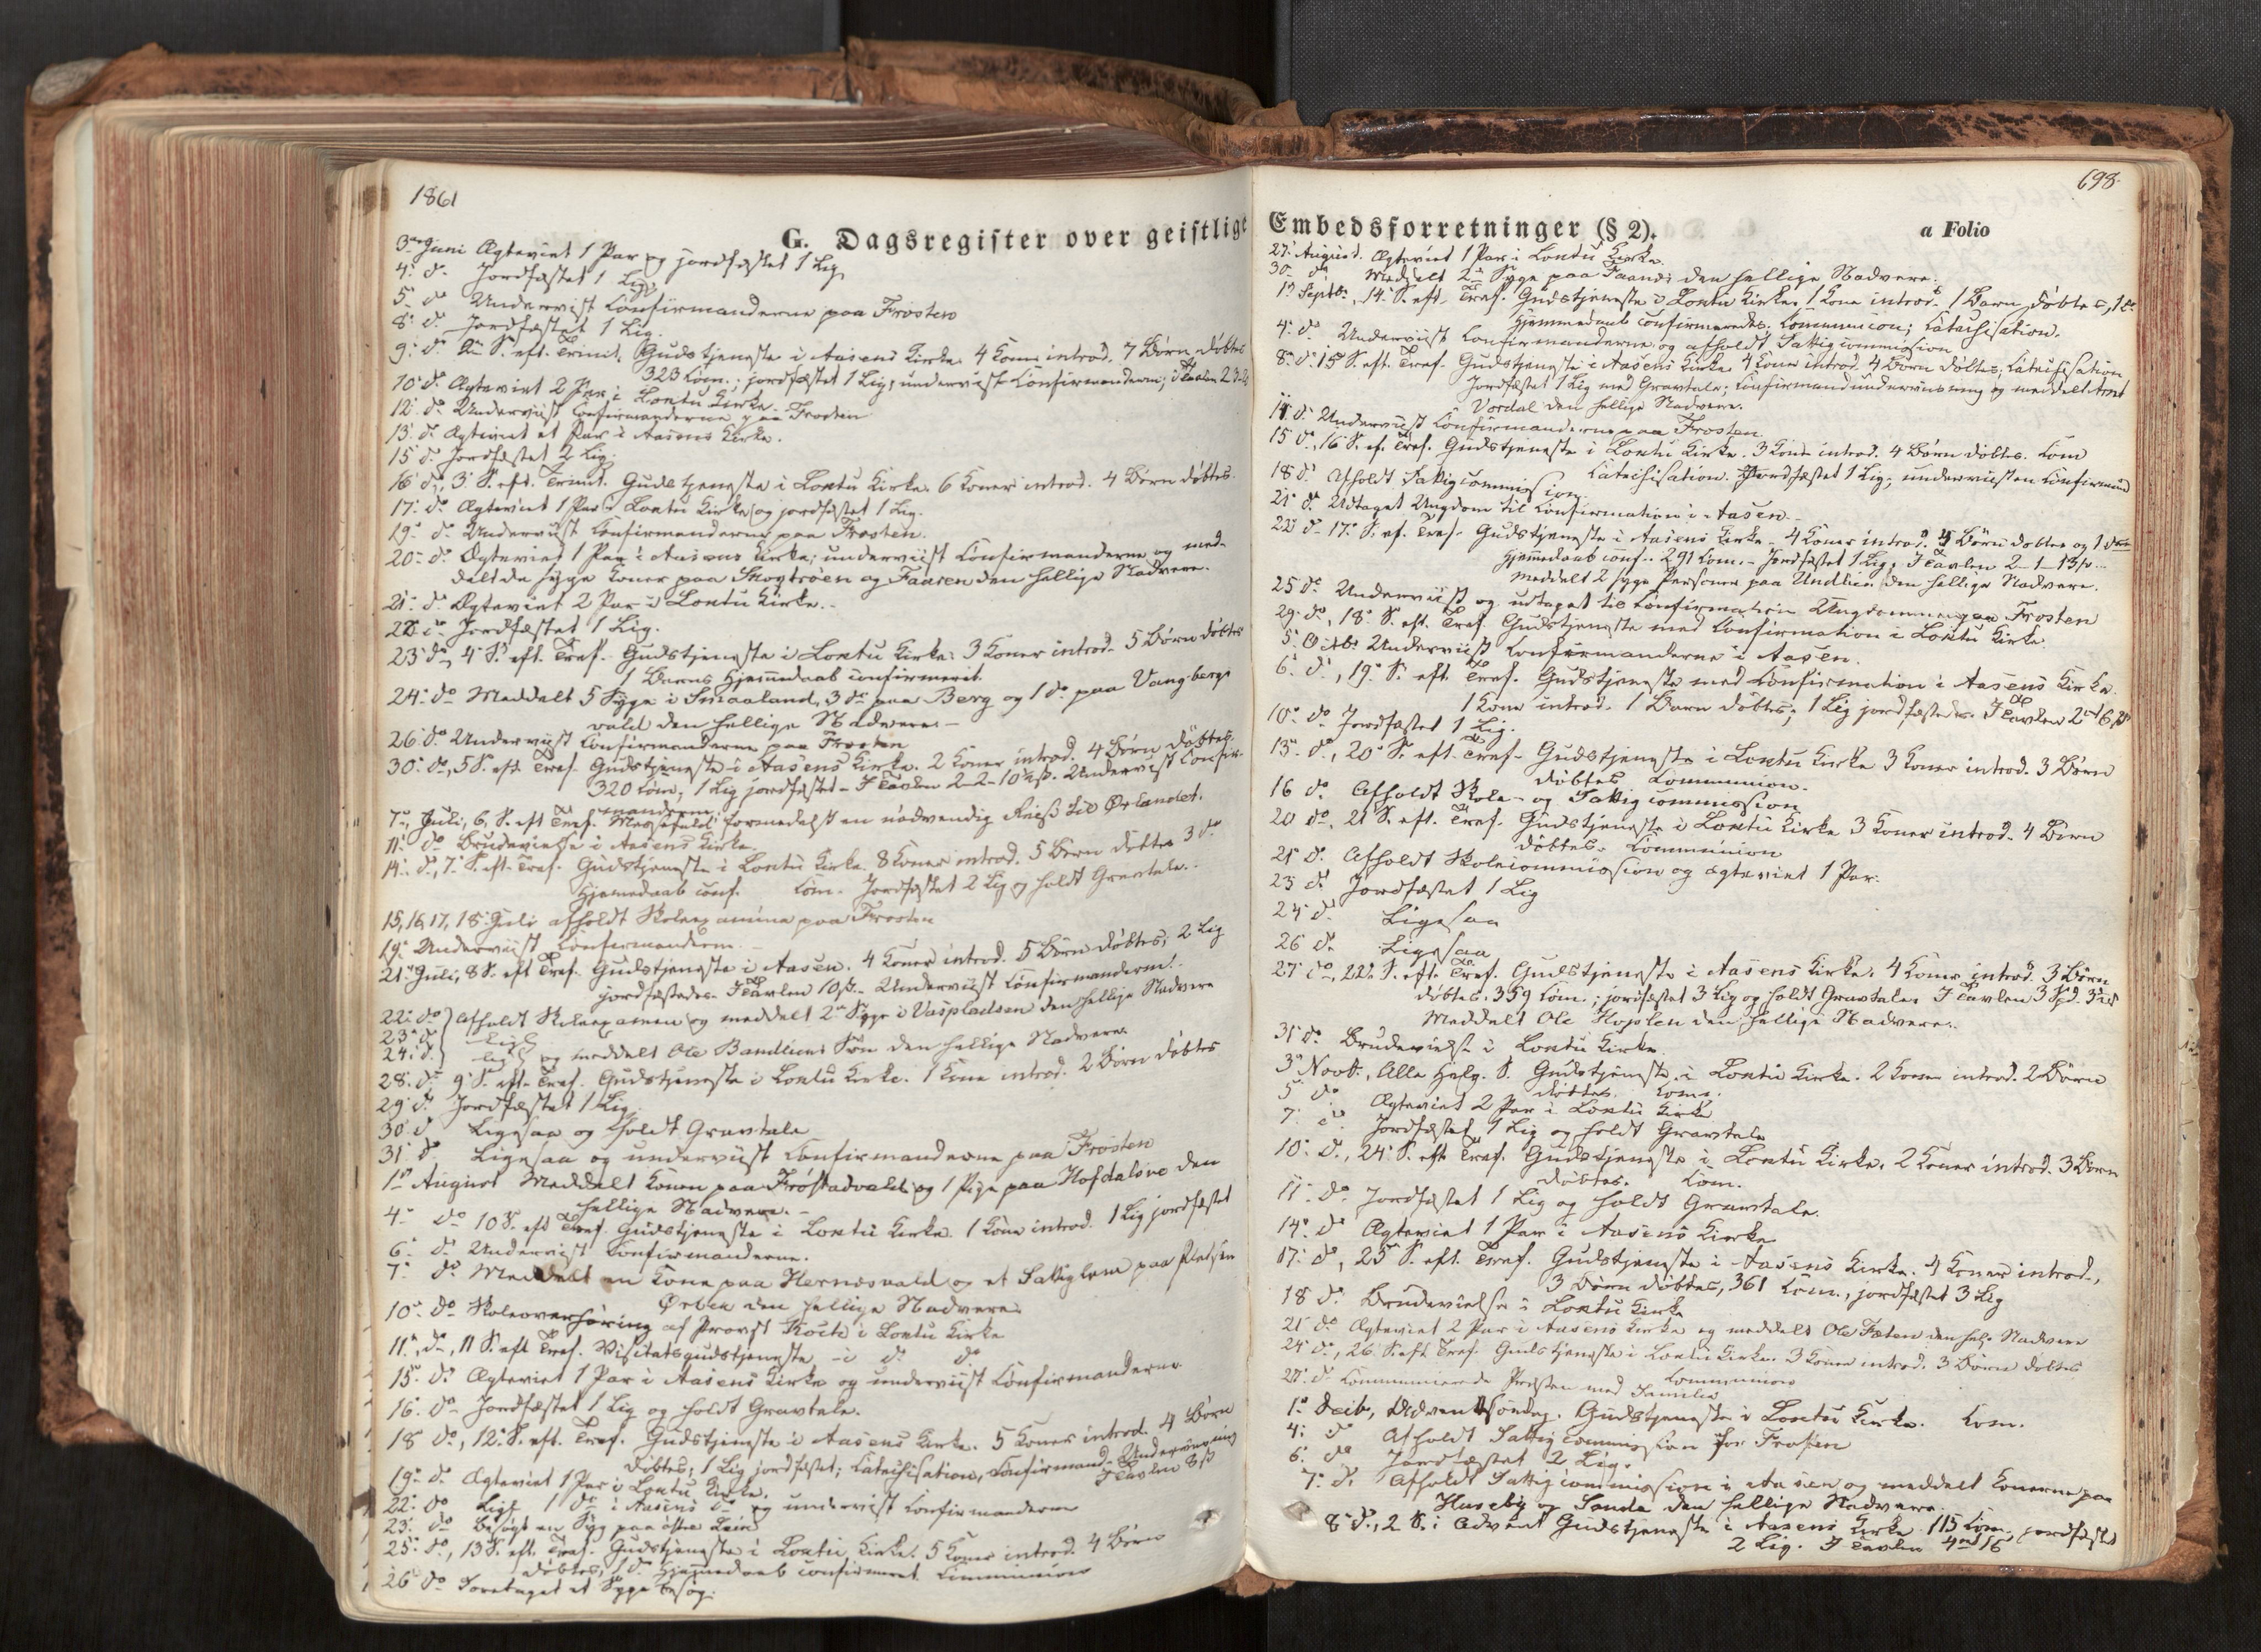 1861
G. Dagsregister over geistlige
3die Juni Ægteviet 1 Par og jordfæstet 1 Lig
4. do Jordfæstet 1 Lig
5. do Underviist Confirmanderne paa Frosten
8. do Jordfæstet 1 Lig.
9. do 2. S. eft. Trinit. Gudstjeneste i Aasens Kirke. 4 Koner introd. 7 Børn døbtes
323 Com.; jordfæstet 1 Lig, underviist Confirmanderne; I Tavlen
10. do Ægteviet 2 Par i Lontu Kirke.
12. do Underviist Confirmanderne paa Frosten
13. do Ægteviet et Par i Aasens Kirke.
15. do Jordfæstet 2 Lig.
16. do, 3. S. eft. Trinit. Gudstjeneste i Lontu Kirke. 6 Koner introd. 4 Børn døbtes.
17. do Ægteviet 1 Par i Lontu Kirke og jordfæstet 1 Lig.
19. do Underviist Confirmanderne paa Frosten.
20. do Ægteviet 1 Par i Aasens Kirke; underviist Confirmanderne og med-
delt de syge Koner paa og Faaren den hellige Nadvere.
21. do Ægteviet 2 Par i Lontu Kirke.
22. do Jordfæstet 1 Lig.
23. do, 4. S. eft. Tref. Gudstjeneste i Lontu Kirke. 3 Koner introd. 5 Børn døbtes
1 Barns Hjemmedaab confirmeret.
24. do Meddelt 5 Syge i Smaaland, 3 do paa Berg og 1 do paa Vangbergs
vald den hellige Nadvere.
26. do Underviist Confirmanderne paa Frosten
30. do, 5 S. eft. Tref. Gudstjeneste i Aasens Kirke. 2 Koner introd. 4 Børn døbtes.
320 Com; 1 Lig jordfæstet. I Tavlen 2-2-10½ ß. Underviist Confir-
manderne.
7. Juli, 6. S. eft Tref. Messefald formedelst en nødvendig Reise til Ørlandet.
11. do Brudevielse i Aasens Kirke.
14. do, 7. S. eft. Tref. Gudstjeneste i Lontu Kirke. 8 Koner introd. 5 Børn døbtes 3 do
Hjemmedaab conf. Com. Jordfæstet 2 Lig og holdt Gravtale.
15, 16, 17, 18 Juli afholdt Skoleexamina paa Frosten
19. Underviist Confirmanderne.
21. Juli, 8 S. eft Tref. Gudstjeneste i Aasen. 4 Koner introd. 5 Børn døbtes; 2 Lig
jordfæstedes. I Tavlen 10 ß. Underviist Confirmanderne.
22. do Afholdt Skoleexamen og meddelt 2 Syge i Vaspladsen den hellige Nadvere
23. do Lig.
24. do lig. og meddelt Ole Bandliens Søn den hellige Nadvere
28. do 9. S. eft. Tref. Gudstjeneste i Lontu Kirke. 1 Kone introd. 2 Børn døbtes
29. do Jordfæstet 1 Lig
30. d Ligesaa og holdt Gravtale
31. do Ligesaa og underviist Confirmanderne paa Frosten
1. August Meddelt Konen paa Frøstadvald og 1 Pige paa Hofdalove den
hellige Nadvere.
4. do 10 S. eft Tref. Gudstjeneste i Lontu Kirke. 1 Kone introd. 1 Lig jordfæstet
6. do Underviist Confirmanderne.
7. do Meddelt en Kone paa Hernæsvald og et Fattiglem paa Pladsen
den hellige Nadvere
10. do Skoleoverhøring af Provst Koch i Lontu Kirke
11. do, 11 S. eft Tref. Visitatsgudstjeneste i do do
15. do Ægteviet 1 Par i Aasens Kirke og underviist Confirmanderne
16. do Jordfæstet 1 Lig og holdt Gravtale.
18. do, 12. S. eft. Tref. Gudstjeneste i Aasens Kirke. 5 Koner introd. 4 Børn
døbtes; 1 Lig jordfæstet; Catechisation, Confirmand-Underviisning
I Tavlen 8 ß
19. do Ægteviet 1 Par i Lontu Kirke.
22. do Lig. 1 do i Aasens do og underviist Confirmanderne
23. do Besøgt en Syg paa
25. do, 13 S. eft. Tref. Gudstjeneste i Lontu Kirke. 5 Koner introd. 4 Børn
døbtes, 1 do Hjemmedaab confirmeret. Communion
26. do Foretaget et Sygebesøg.
698.
Embedsforretninger (§ 2).
a Folio
27. August. Ægteviet 1 Par i Lontu Kirke.
30. do Meddelt 2 Syge paa den hellige Nadvere.
1. Septbr., 14. S. eft. Tref. Gudstjeneste i Lontu Kirke. 1 Kone introd. 1 Barn døbtes, 1 do
Hjemmedaab confirmeredes. Communion; Catechisation.
4. do Underviist Confirmanderne og afholdt Fattigcommission
8. do. 15 S. eft. Tref. Gudstjeneste i Aasens Kirke. 4 Koner introd. 4 Børn døbtes, Catechisation
Jordfæstet 1 Lig med Gravtale; Confirmandunderviisning og meddelt
Vordal den hellige Nadvere.
11. do Underviist Confirmanderne paa Frosten.
15 do, 16 S. ef. Tref. Gudstjeneste i Lontu Kirke. 3 Koner introd. 4 Børn døbtes. Com
Catechisation. Jordfæstet 1 Lig; underviist en Confirmand
18 do Afholdt Fattigcommission.
21 do Udtaget Ungdom til Confirmation i Aasen.
22 do 17. S. ef. Tref. Gudstjeneste i Aasens Kirke. 4 Koner introd. 4 Børn døbtes og 1 do
Hjemmedaab conf. 291 Com. Jordfæstet 1 Lig. I Tavlen 2-1-13 ß.
Meddelt 2 syge Personer paa Undlien den hellige Nadvere.
25 do Underviist og udtaget til Confirmation Ungdommen paa Frosten
29. do, 18. S. eft. Tref. Gudstjeneste med Confirmation i Lontu Kirke.
5. Octbr Underviist Confirmanderne i Aasen.
6. do, 19. S. eft. Tref. Gudstjeneste med Confirmation i Aasens Kirke
1 Kone introd. 1 Barn døbtes; 1 Lig jordfæstedes. I Tavlen
10. do Jordfæstet 1 Lig.
13. do, 20. S. eft. Tref. Gudstjeneste i Lontu Kirke 3 Koner introd. 3 Børn
døbtes Communion.
16 do Afholdt Skole- og Fattigcommission
20 do, 21 S. eft. Tref. Gudstjeneste i Lontu Kirke 3 Koner introd. 4 Børn
døbtes. Communion
21 do Afholdt Skolecommission og ægteviet 1 Par.
23 do Jordfæstet 1 Lig
24. do Ligesaa
26 do Ligesaa
27 do, 22. S. eft. Tref. Gudstjeneste i Aasens Kirke. 4 Koner introd. 3 Børn
døbtes. 359 Com.; jordfæstet 3 Lig og holdt Gravtale. I Tavlen
Meddelt Ole Hoplen den hellige Nadvere.
31 do Brudevielse i Lontu Kirke
3. Novbr., Alle Helg. S. Gudstjeneste i Lontu Kirke. 2 Koner introd. 2 Børn
døbtes. Com.
5 do Ægteviet 2 Par i Lontu Kirke
7. do Jordfæstet 1 Lig og holdt Gravtale
10. do, 24. S. eft. Tref. Gudstjeneste i Lontu Kirke. 2 Koner introd. 3 Børn
døbtes. Com.
11. do Jordfæstet 1 Lig og holdt Gravtale.
14. do Ægteviet 1 Par i Aasens Kirke
17. do, 25 S. eft. Tref. Gudstjeneste i Aasens Kirke. 4 Koner introd.,
3 Børn døbtes, 361 Com., jordfæstet 3 Lig
18 do Brudevielse i Lontu Kirke
21 do Ægteviet 2 Par i Aasens Kirke og meddelt Ole Fæten den hel. Nadvere
24 do, 26. S. eft Tref. Gudstjeneste i Lontu Kirke. 3 Koner introd. 3 Børn døbtes
Communion
27. d. Communicerede Præsten med Familie
1. Decbr, Adventsøndag. Gudstjeneste i Lontu Kirke. Com.
4. do Afholdt Fattigcommission for Frosten
6. do Jordfæstet 2 Lig.
7. do Afholdt Fattigcommission i Aasen og meddelt Konerne paa
Huseby og Sande den hellige Nadvere.
8. do, 2 S. i Advent Gudstjeneste i Aasens Kirke 115 Com. jordfæstet
2 Lig. I Tavlen